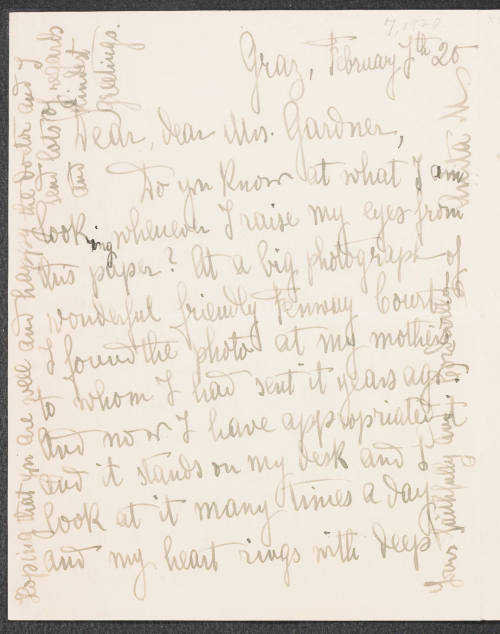 7, 1920
Graz, February 7th 20
Dear, dear Mrs. Gardner,
Do you know at what I am
looking whenever I raise my eyes from
this paper? At a big photograph of
wonderful friendly Fenway Court.
I found the photo at my mothers
to whom I had sent it years ago.
And now I have appropriated it
and it stands on my desk and I
look at it many times a day
and my heart rings with deep
Hoping that you are well and happy the Doctor and I
send lots of regards
and kindest
Greetings.
Yours faithfully and
Anita M.